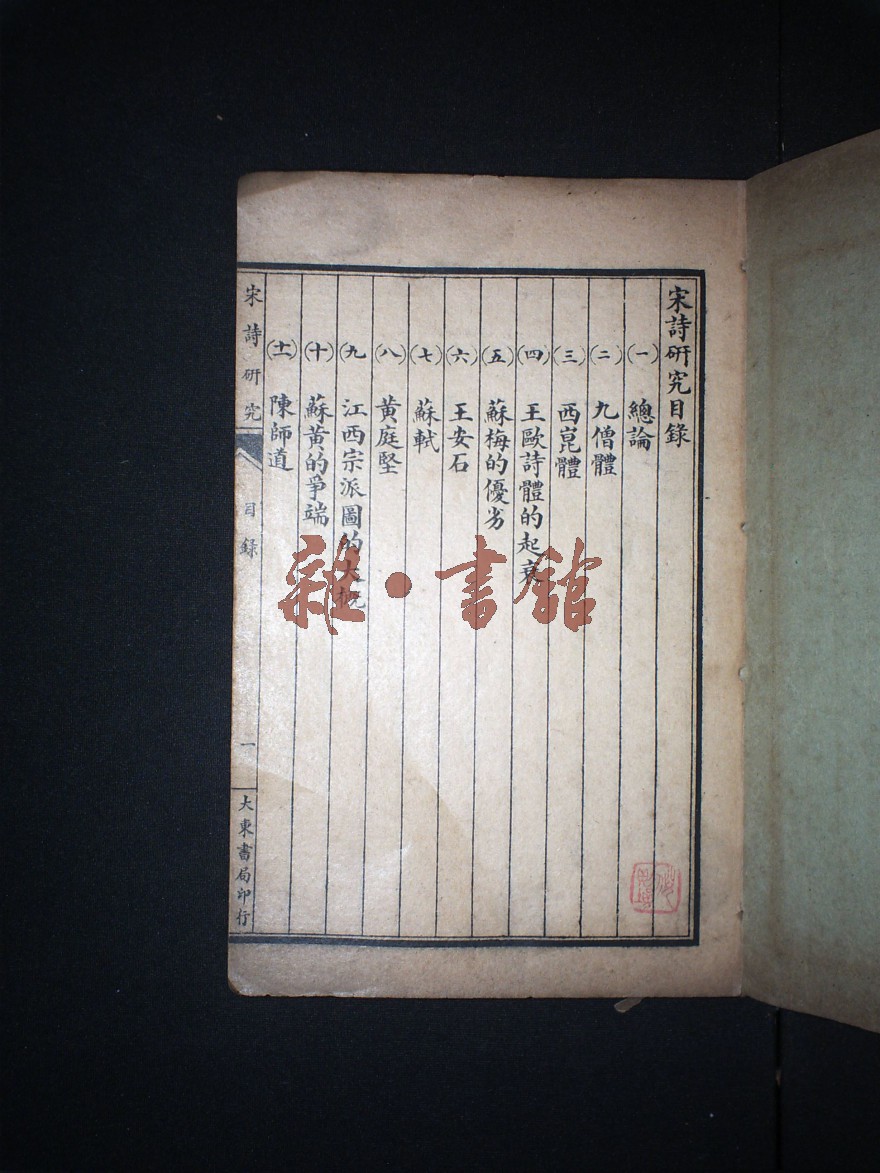 宋詩研究目錄
(一) 總論
(二) 九僧體
(三) 西崑體
(四) 王歐詩體的起衰
(五) 蘇梅的優劣
(六) 王安石
(七) 蘇軾
(八) 黃庭堅
(九) 江西宗派圖的大概
(十) 蘇黃的爭端
(十一) 陳師道
宋詩研究
目錄
一
大東書局印行
雜·書館